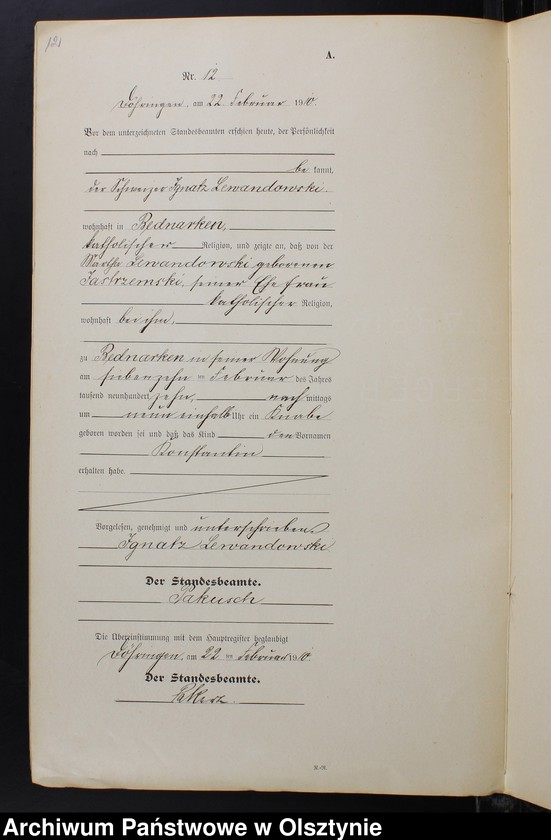 121
A.
Nr. 12
Döhringen, am 22 Februar 1910.
Vor dem unterzeichneten Standesbeamten erschien heute, der Persönlichkeit
nach
be kannt,
der Schweizer Ignatz Lewandowski
wohnhaft in Bednarken,
katholischer Religion, und zeigte an, daß von der
Martha Lewandowski geborenen
Jastrzemski, seiner Ehefrau
katholischer Religion,
wohnhaft bei ihm,
zu Bednarken in seiner Wohnung
am siebenzehn ten Februar des Jahres
tausend neunhundert zehn, nach mittags
um neun einhalb Uhr ein Knabe
geboren worden sei und daß das Kind den Vornamen
Konstantin
erhalten habe.
Vorgelesen, genehmigt und unterschrieben.
Ignatz Lewandowski
Der Standesbeamte.
Pakusch
Die Übereinstimmung mit dem Hauptregister beglaubigt
Döhringen, am 22 ten Februar 1910.
Der Standesbeamte.
Archiwum Państwowe w Olsztynie